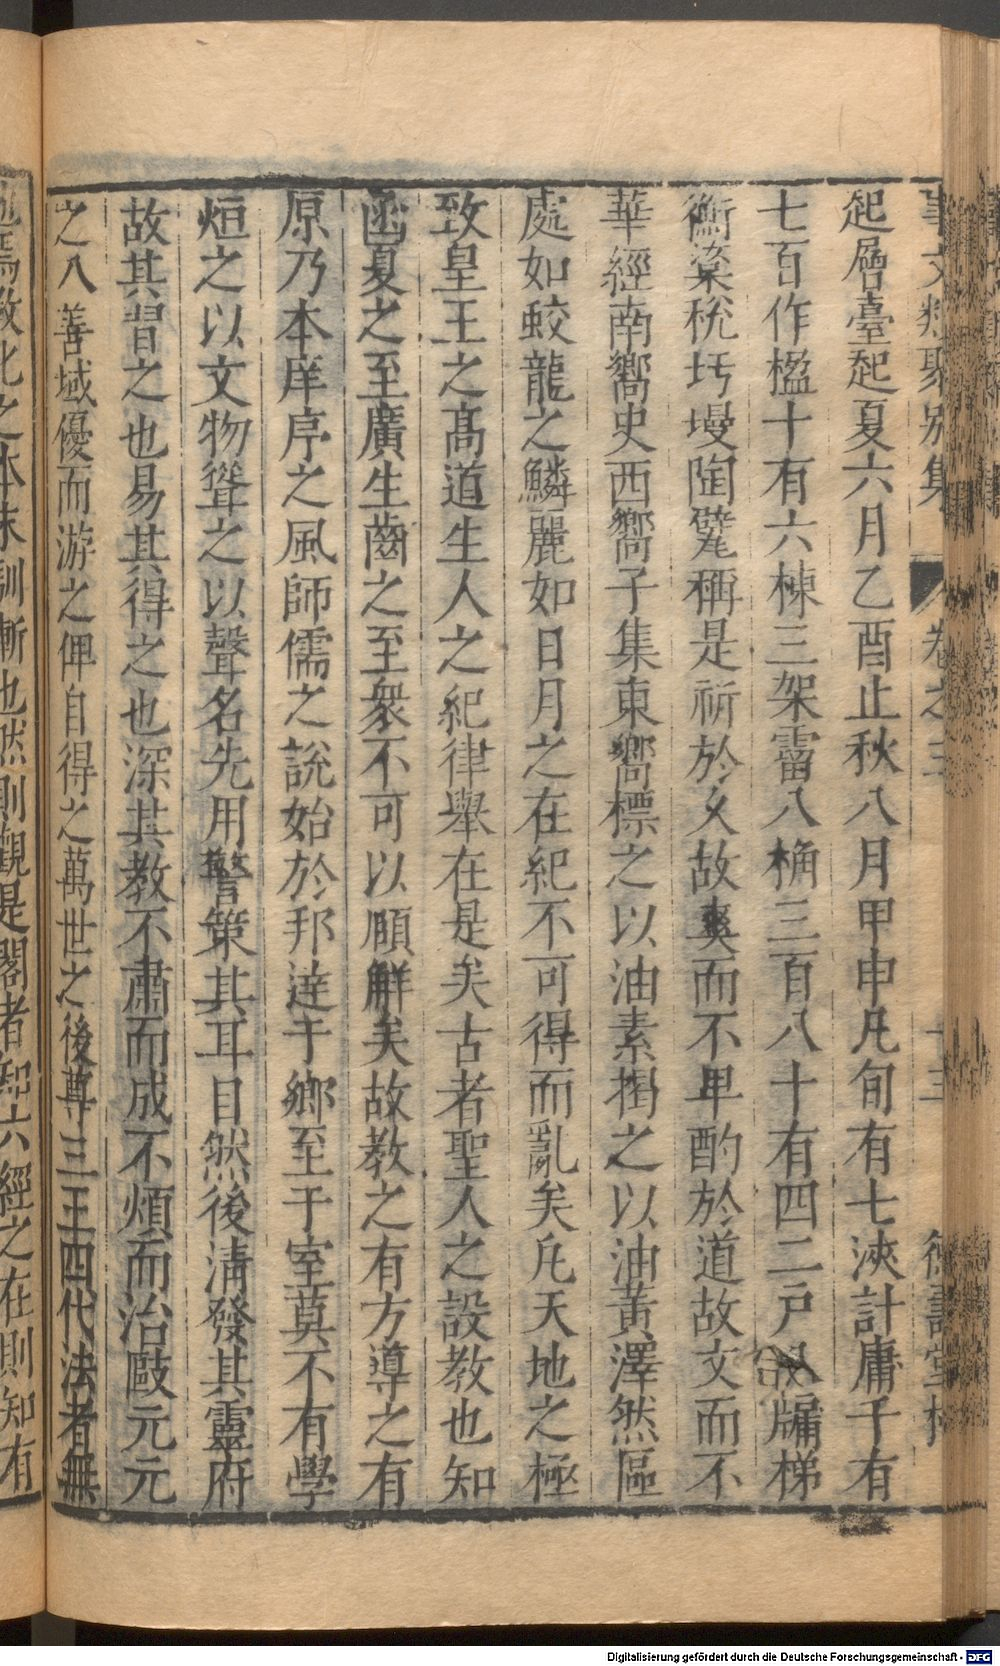 事文類聚別集 卷之三 十三 德壽堂梓
起層臺起夏六月乙酉止秋八月甲申凡旬有七浹計庸千有
七百作楹十有六棟三架霤八桷三百八十有四二戶 牖梯
衡棨梲圬墁陶甓稱是祈於久故爽而不卑酌於道故文而不
華經南嚮史西嚮子集東嚮標之以油素揭之以油黃澤然區
處如蛟龍之鱗麗如日月之在紀不可得而亂矣凡天地之極
致皇王之高道生人之紀律舉在是矣古者聖人之設教也知
函夏之至廣生齒之至衆不可以頤解矣故教之有方導之有
原乃本庠序之風師儒之說始於邦達于鄉至于室莫不有學
烜之以文物聳之以聲名先用警策其耳目然後淸發其靈府
故其習之也易其得之也深其教不肅而成不煩而治敺元元
之入善域優而游之俾自得之萬世之後尊三王四代法者無
他焉教化之本末訓漸也然則觀是閣者知六經之在則知有
Digitalisierung gefördert durch die Deutsche Forschungsgemeinschaft - DFG